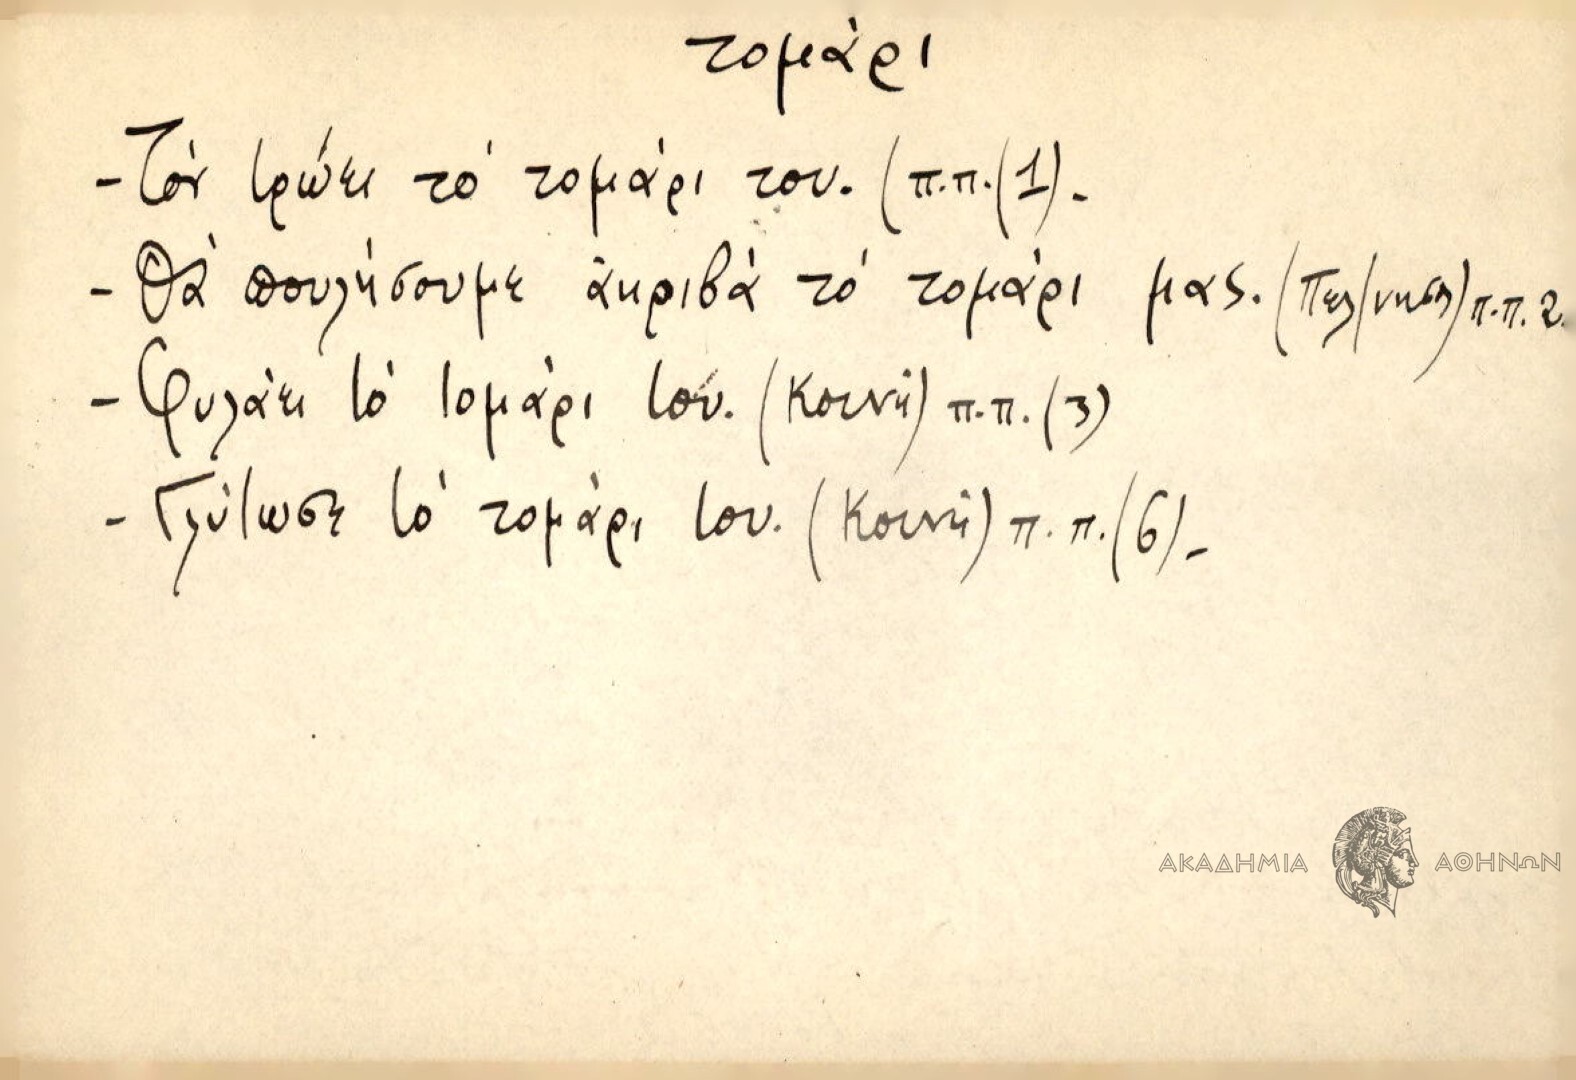 τομάρι
- Τόν τρώει τό τομάρι του. (π.π.(1).-
- Θά πουλήσουμε ἀκριβά τό τομάρι μας. (Πελ/νησο) π.π. 2.
- Φυλάει τό τομάρι του. (Κοινή) π.π. (3)
- Γλύτωσε τό τομάρι του. (Κοινή) π. π. (6).-
ΑΚΑΔΗΜΙΑ ΑΘΗΝΩΝ